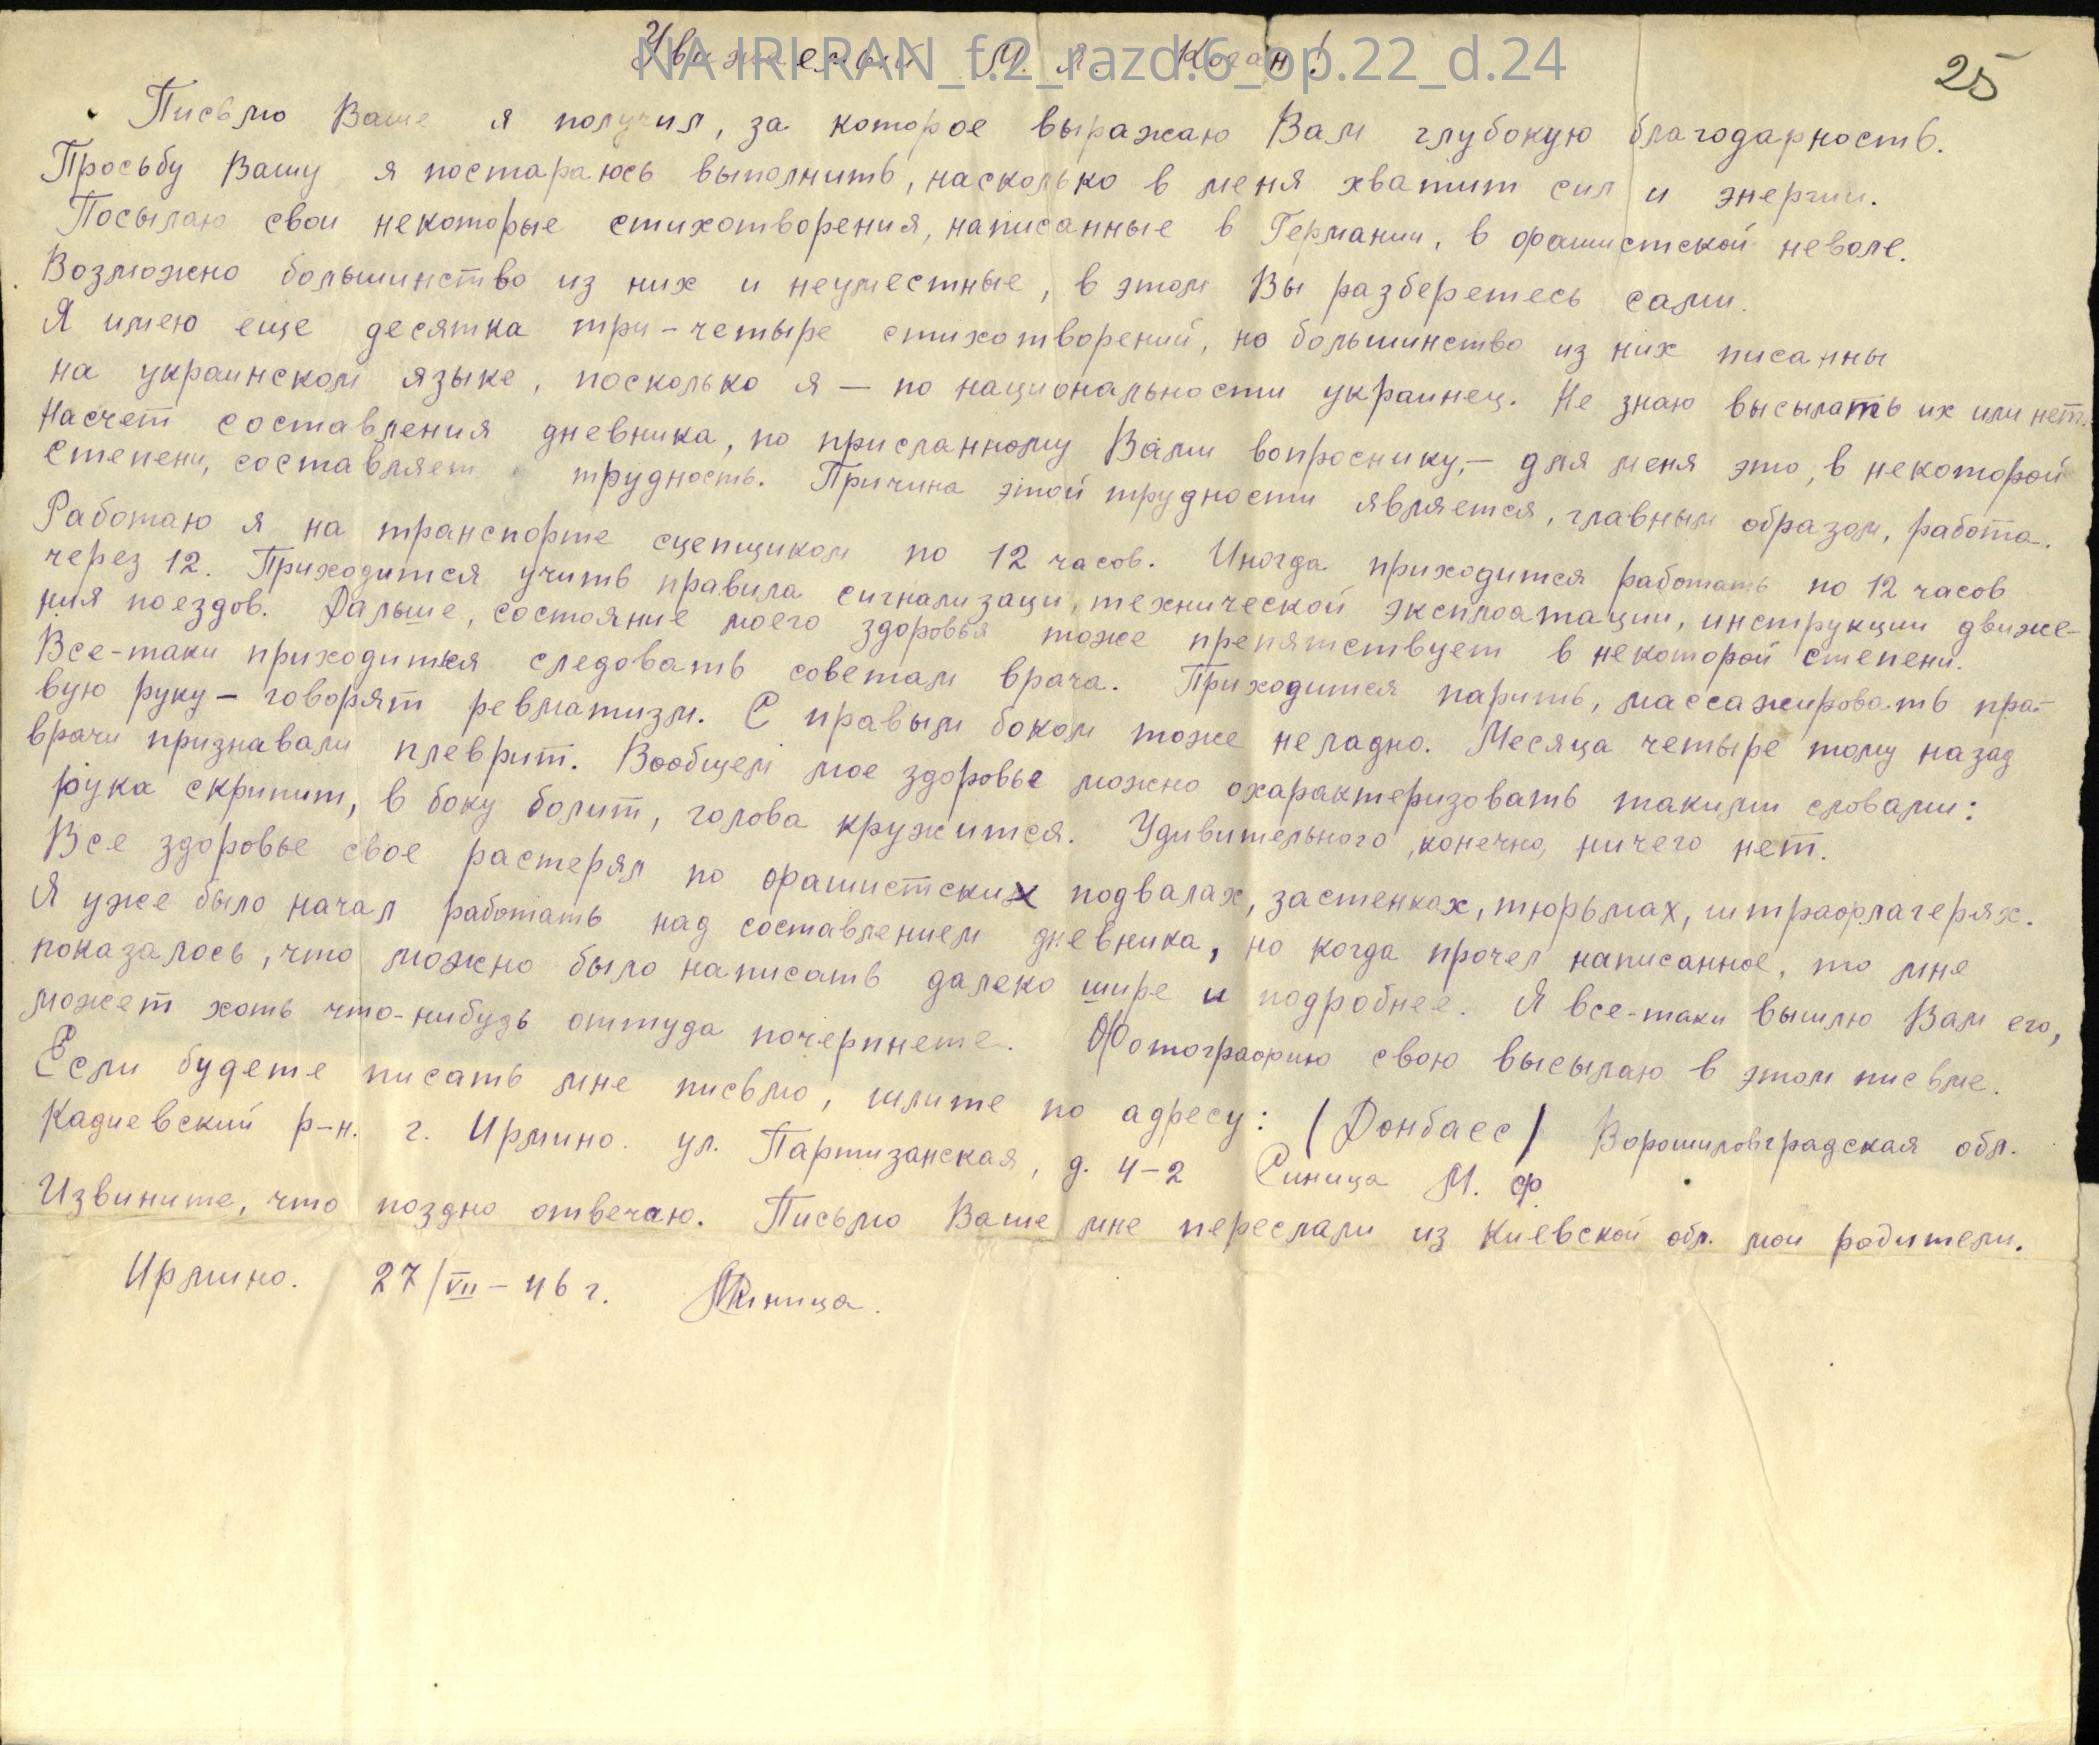 NA IRI RAN_f.2_razd.6_op.22_d.24
Уважаемый М. Я. Коган!
25
Письмо Ваше я получил, за которое выражаю Вам глубокую благодарность.
Просьбу Вашу я постараюсь выполнить, насколько в меня хватит сил и энергии.
Посылаю свои некоторые стихотворения, написанные в Германии, в фашистской неволе.
Возможно большинство из них и неуместные, в этом Вы разберетесь сами.
Я имею еще десятка три-четыре стихотворений, но большинство из них писанны
на украинском языке, посколько я — по национальности украинец. Не знаю высылать их или нет.
Насчет составления дневника, по присланному Вами вопроснику,— для меня это, в некоторой
степени, составляет трудность. Причина этой трудности является, главным образом, работа.
Работаю я на транспорте сцепщиком по 12 часов. Иногда приходится работать по 12 часов
через 12. Приходится учить правила сигнализаци, технической эксплоатации, инструкции движе-
ния поездов. Дальше, состояние моего здоровья тоже препятствует в некоторой степени.
Все-таки приходится следовать советам врача. Приходится парить, массажировать пра-
вую руку — говорят ревматизм. С правым боком тоже неладно. Месяца четыре тому назад
врачи признавали плеврит. Вообщем мое здоровье можно охарактеризовать такими словами:
рука скрипит, в боку болит, голова кружится. Удивительного, конечно, ничего нет.
Все здоровье свое растерял по фашистских подвалах, застенках, тюрьмах, штрафлагерях.
Я уже было начал работать над составлением дневника, но когда прочел написанное, то мне
показалось, что можно было написать далеко шире и подробнее. Я все-таки вышлю Вам его,
может хоть что-нибудь оттуда почерпнете. Фотографию свою высылаю в этом писвме.
Если будете писать мне письмо, шлите по адресу: /Донбасс/ Ворошиловградская обл.
Кадиевский р-н. г. Ирмино. ул. Партизанская, д. 4-2 Синица М. Ф.
Извините, что поздно отвечаю. Письмо Ваше мне переслали из Киевской обл. мои родители.
Ирмино. 27/VII-46 г. МСиница.